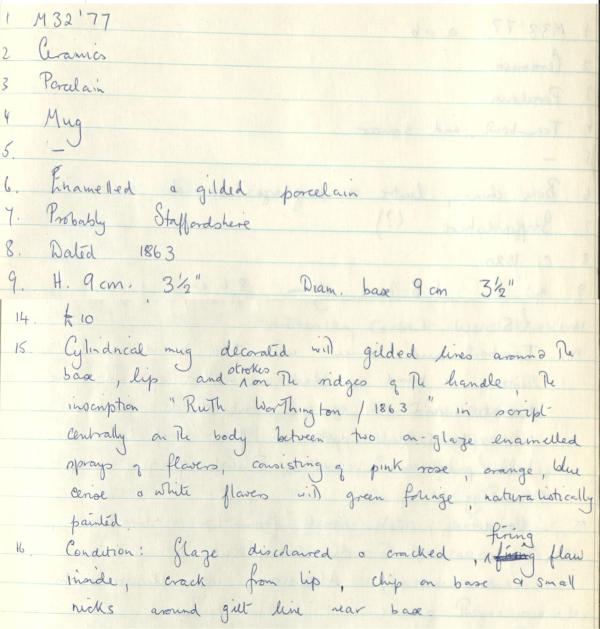 1 M32'77
2 Ceramics
3 Porcelain
4 Mug
5. –
6. Enamelled & gilded porcelain
7. Probably Staffordshire
8. Dated 1863
9. H. 9cm. 3½" Diam. base 9cm 3½"
14. £10
15. Cylindrical mug decorated with gilded lines around the
base, lip and strokes on the ridges of the handle, the
inscription "Ruth Worthington / 1863" in script
centrally on the body between two on-glaze enamelled
sprays of flowers, consisting of pink rose, orange, blue
cerise & white flowers with green foliage, naturalistically
painted.
16. Condition: Glaze discoloured & cracked, firing flaw
inside, crack from lip, chip on base & small
nicks around gilt line near base.